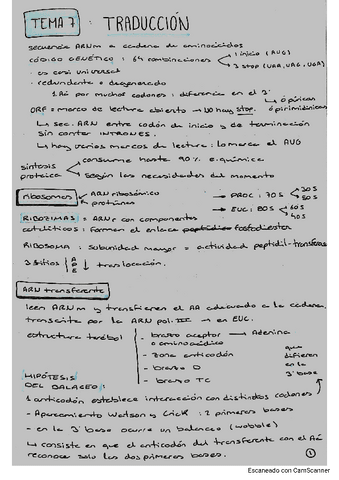 TEMA 7 : TRADUCCIÓN
secuencia ARNm a cadena de aminoácidos
CÓDIGO GENÉTICO : 64 combinaciones
1 inicio (AUG)
3 stop (UAA, UAG, UGA)
- es casi universal
- redundante o degenerado
1 Aá por muchos codones : diferencia en el 3º
o púricas
o pirimidínicas
ORF = marco de lectura abierto → No hay stop.
↳ sec. ARN entre codón de inicio y de terminación
sin contar INTRONES.
↳ hay varios marcos de lectura: lo marca el AUG
síntesis proteica
consume hasta 90% e. química
según las necesidades del momento
ribosomas
ARN ribosómico
proteínas
PROC : 70S
30S
50S
EUC : 80S
60S
40S
RIBOZIMAS : ARNr con componentes
catalíticos : Forman el enlace peptídico fosfodiester
RIBOSOMA : subunidad mayor = actividad peptidil-transferasa
3 sitios A P E ↓ translocación.
ARN transferente
leen ARNm y transfieren el AA adecuado a la cadena.
transcrito por la ARN pol. III → en EUC.
estructura trébol
- brazo aceptor → Adenina
o aminoácido
- zona anticodón
- brazo D
- brazo TC
que
difieren
en la
3ª base
HIPÓTESIS
DEL BALANCEO :
1 anticodón establece interacción con distintos codones
- Apareamiento Watson y Crick : 2 primeras bases
- en la 3ª base ocurre un balanceo (wobble)
↳ consiste en que el anticodón del transferente con el Aá
reconoce solo las dos primeras bases.
1
Escaneado con CamScanner